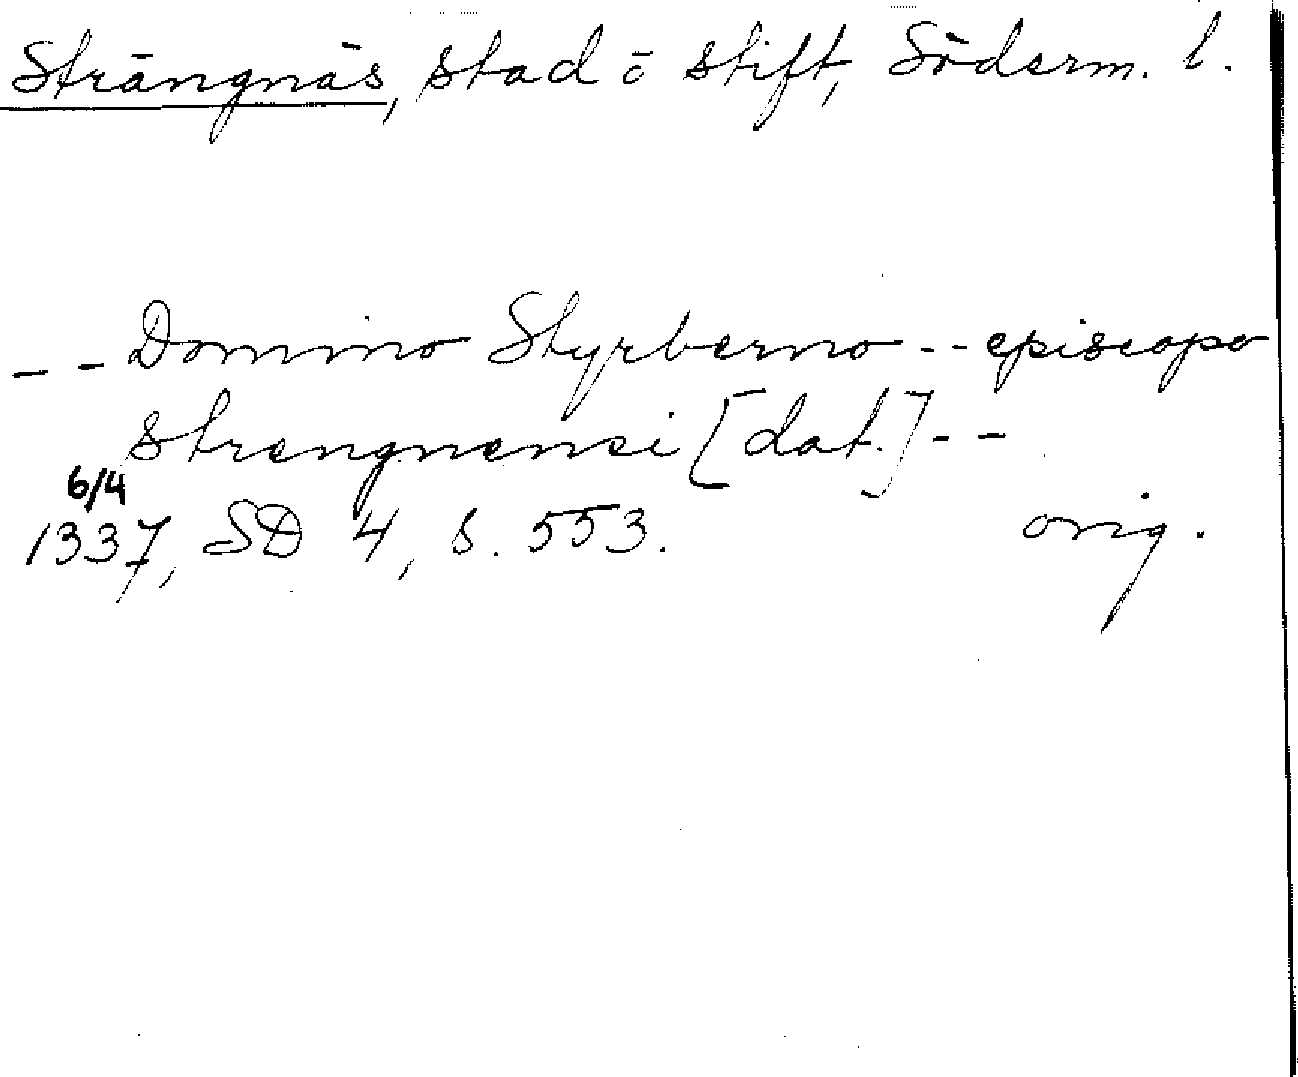 Strängnäs, stad o stift, Söderm. l.
- - Domino Styrberno - - episcopo
strengnensi [dat.] - -
6/4
1337, SD 4, s. 553. orig.